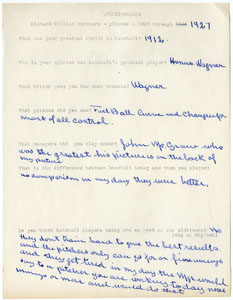 QUESTIONNAIRE
Richard William Marquard - pitcher - 1908 through 1927
What was your greatest thrill in baseball? 1912.
Who in your opinion was baseball's greatest player? Honus Wagner
What hitter gave you the most trouble? Wagner
What pitches did you use? Fast Ball Curve and Change of
most of all control.
What managers did you play under? John McGraw who
was the greatest his picture is on the back of
my picture
What is the difference between baseball today and when you played?
no comparison in my day they were better.
Do you think baseball players today are as good as the oldtimers? No
(why or why not)
they dont train hard to give the best results
and the pitchers only can go for or five innings
and they get tired in my day the Mgr would
say to a pitcher you are working today need
and would do it